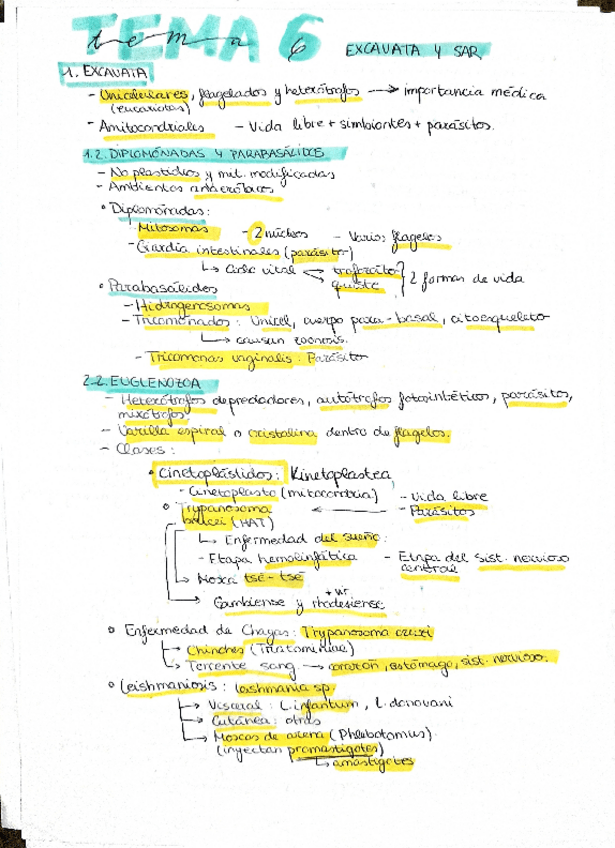 TEMA 6
tema
EXCAVATA Y SAR
1. EXCAVATA
- Unicelulares, flagelados y heterótrofos → importancia médica
(eucariotas)
- Amitocondriales - Vida libre + simbiontes + parásitos.
1.2. DIPLOMÓNADAS Y PARABASÁLIDOS
- No plastidios y mit. modificadas
- Ambientes anaeróbicos
• Diplomónadas:
- Mitosomas - 2 núcleos - Varios flagelos
- Giardia intestinales (parásito)
↳ Ciclo vital trofozoito
quiste } 2 formas de vida
• Parabasálidos
- Hidrogenosomas
- Tricomónados: Unicel, cuerpo para-basal, citoesqueleto
↳ causan zoonosis.
- Tricomonas vaginalis: Parásito
2.2. EUGLENOZOA
- Heterótrofos depreciadores, autótrofos fotosintéticos, parásitos,
mixótrofos
- Varilla espiral o cristalina dentro de flagelos.
- Clases:
• Cinetoplástidos: Kinetoplastea
- Cinetoplasto (mitocondria) - Vida libre
- Parásitos
• Trypanosoma
brucei (HAT)
↳ Enfermedad del sueño:
- Etapa hemolinfática - Etapa del sist. nervioso
central
→ Mosca tse-tsé
→ Gambiense y rhodesiense
• Enfermedad de Chagas: Trypanosoma cruzi
→ Chinches (Triatominae)
→ Torrente sang → corazón, estómago, sist. nervioso.
• Leishmaniosis: leishmania sp.
→ Visceral: L. infantum, L. donovani
→ Cutánea: otras
→ Moscas de arena (Phlebotomus).
(inyectan promastigotes)
↳ amastigotes